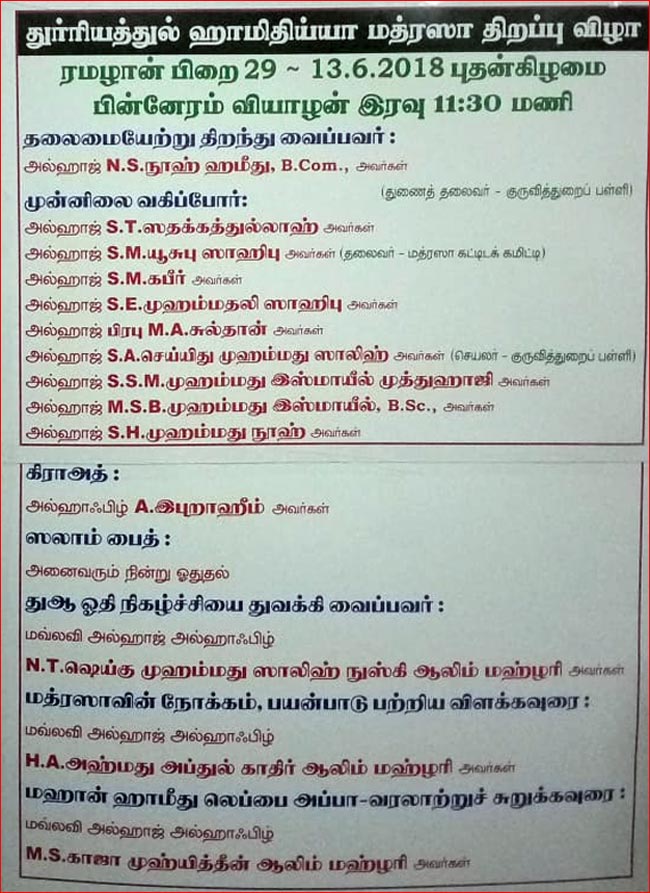 துர்ரியத்துல் ஹாமிதிய்யா மத்ரஸா திறப்பு விழா
ரமழான் பிறை 29 ~ 13.6.2018 புதன்கிழமை
பின்னேரம் வியாழன் இரவு 11:30 மணி
தலைமையேற்று திறந்து வைப்பவர் :
அல்ஹாஜ் N.S.நூஹ் ஹமீது, B.Com., அவர்கள்
(துணைத் தலைவர் - குருவித்துறைப் பள்ளி)
முன்னிலை வகிப்போர்:
அல்ஹாஜ் S.T.ஸதக்கத்துல்லாஹ் அவர்கள்
அல்ஹாஜ் S.M.யூசுபு ஸாஹிபு அவர்கள் (தலைவர் - மத்ரஸா கட்டிடக் கமிட்டி)
அல்ஹாஜ் S.M.கபீர் அவர்கள்
அல்ஹாஜ் S.E.முஹம்மதலி ஸாஹிபு அவர்கள்
அல்ஹாஜ் பிரபு M.A.சுல்தான் அவர்கள்
அல்ஹாஜ் S.A.செய்யிது முஹம்மது ஸாலிஹ் அவர்கள் (செயலர் - குருவித்துறைப் பள்ளி)
அல்ஹாஜ் S.S.M.முஹம்மது இஸ்மாயீல் முத்துஹாஜி அவர்கள்
அல்ஹாஜ் M.S.B.முஹம்மது இஸ்மாயீல், B.Sc., அவர்கள்
அல்ஹாஜ் S.H.முஹம்மது நூஹ் அவர்கள்
கிராஅத் :
அல்ஹாஃபிழ் A.இபுறாஹீம் அவர்கள்
ஸலாம் பைத் :
அனைவரும் நின்று ஓதுதல்
துஆ ஓதி நிகழ்ச்சியை துவக்கி வைப்பவர் :
மவ்லவி அல்ஹாஜ் அல்ஹாஃபிழ்
N.T.ஷெய்கு முஹம்மது ஸாலிஹ் நுஸ்கி ஆலிம் மஹ்ழரி அவர்கள்
மத்ரஸாவின் நோக்கம், பயன்பாடு பற்றிய விளக்கவுரை :
மவ்லவி அல்ஹாஜ் அல்ஹாஃபிழ்
H.A.அஹ்மது அப்துல் காதிர் ஆலிம் மஹ்ழரி அவர்கள்
மஹான் ஹாமீது லெப்பை அப்பா-வரலாற்றுச் சுறுக்கவுரை :
மவ்லவி அல்ஹாஜ் அல்ஹாஃபிழ்
M.S.காஜா முஹ்யித்தீன் ஆலிம் மஹ்ழரி அவர்கள்